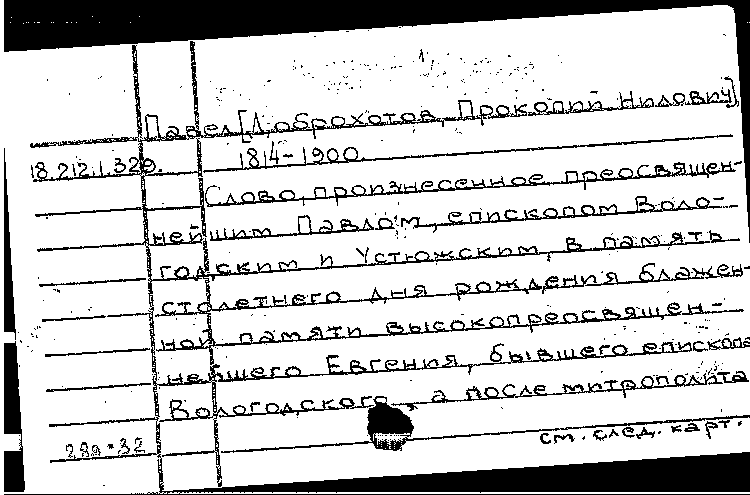 Павел [Доброхотов, Прокопий Нилович]
18.212.1.329. 1814-1900.
Слово, произнесенное преосвящен-
нейшим Павлом, епископом Воло-
годским и Устюжским, в память
столетнего дня рождения блажен-
ной памяти высокопреосвящен-
нейшего Евгения, бывшего епископа
Вологодского, а после митрополита
см. след. карт.